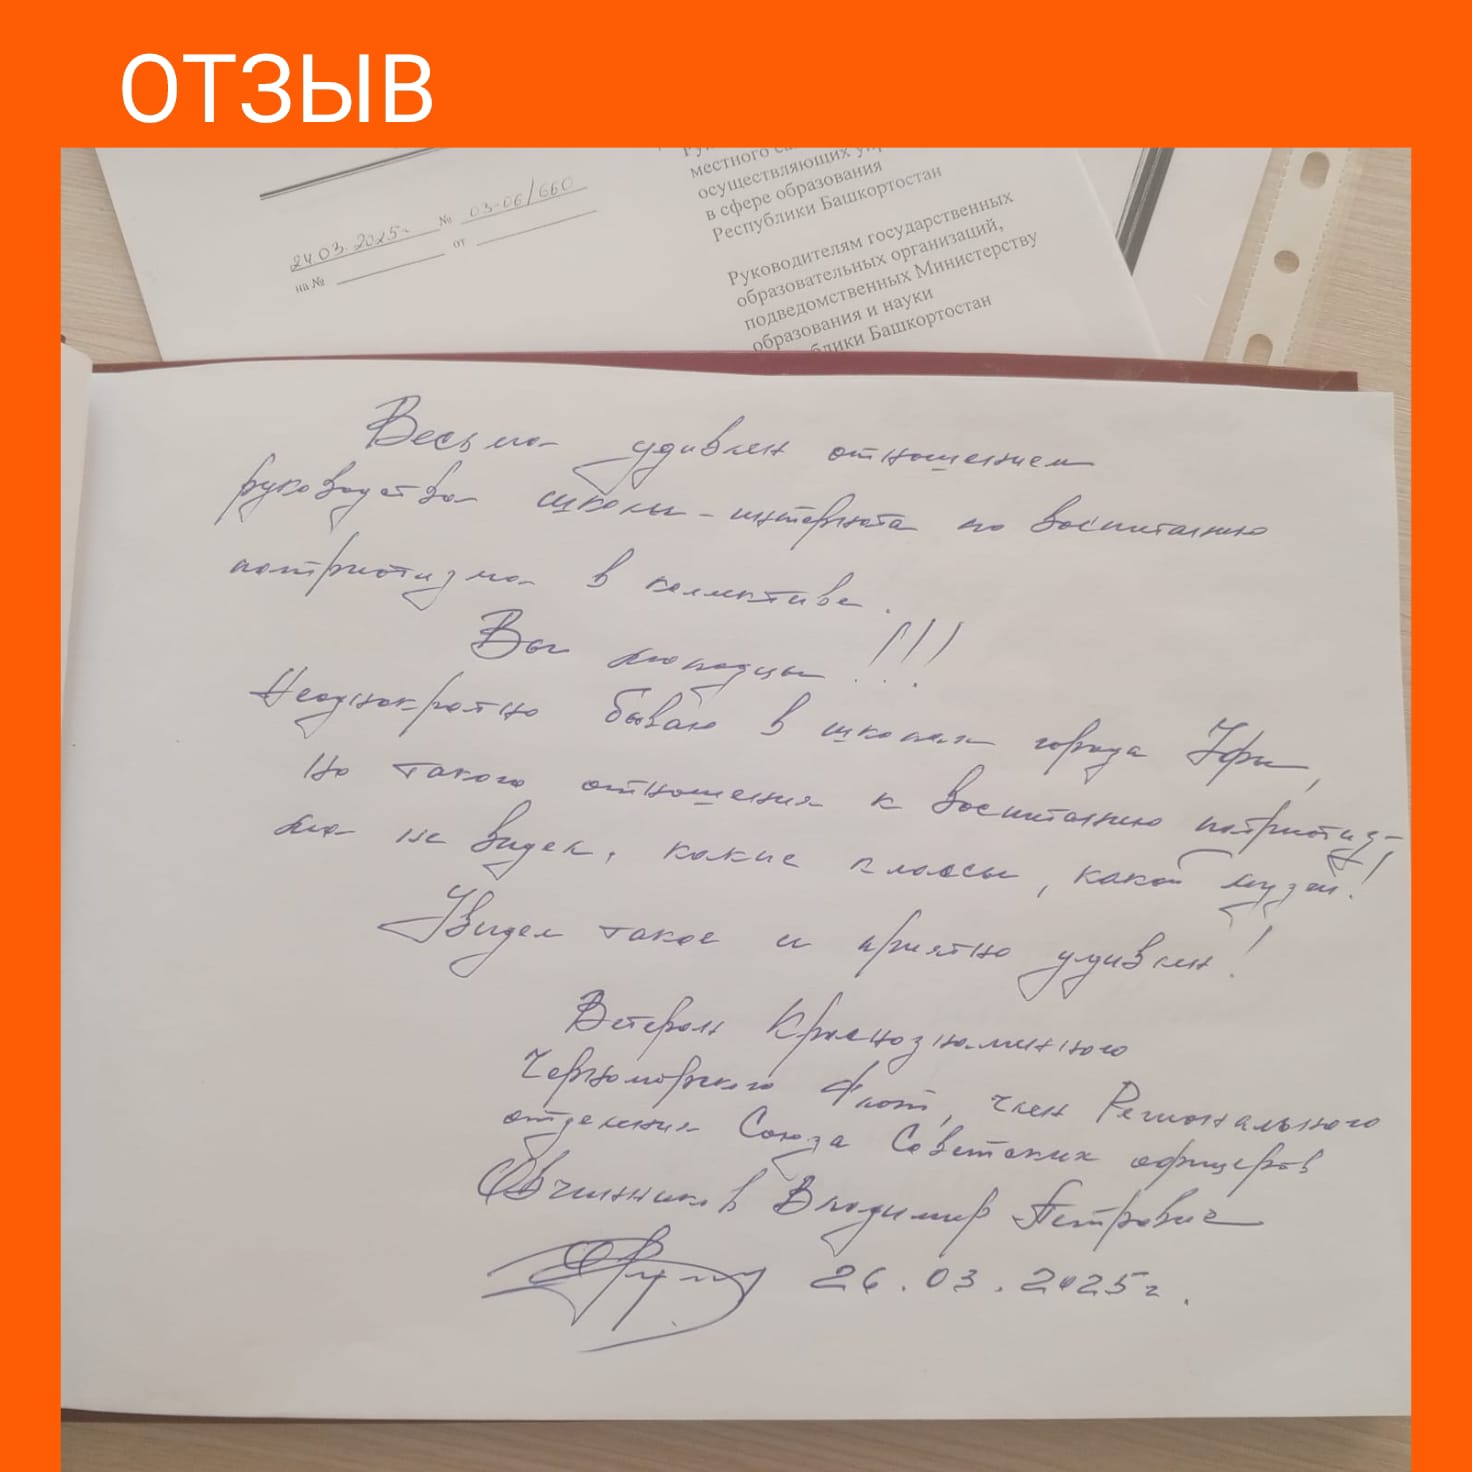 ОТЗЫВ
местного
осуществляющих
в сфере образования
Республики Башкортостан
24.03.2025г. № 03-06/660
на № от
Руководителям государственных
образовательных организаций,
подведомственных Министерству
образования и науки
Башкортостан
Весьма удивлен отношением
руководства школы-интерната по воспитанию
патриотизма в коллективе.
Вы молодцы!!!
Неоднократно бываю в школах города Уфы,
но такого отношения к воспитанию патриотиз-
ма не видел, какие классы, какой музей!
Увидел такое и приятно удивлен!
Ветеран Краснознаменного
Черноморского флота, член Регионального
отделения Союза Советских офицеров
Овчинников Владимир Петрович
26.03.2025г.